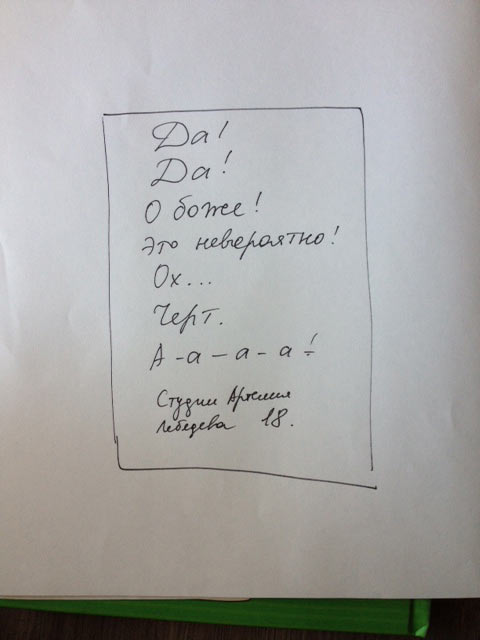 Да!
Да!
О боже!
Это невероятно!
Ох...
Черт.
А-а-а-а!
Студии Артемия
Лебедева 18.